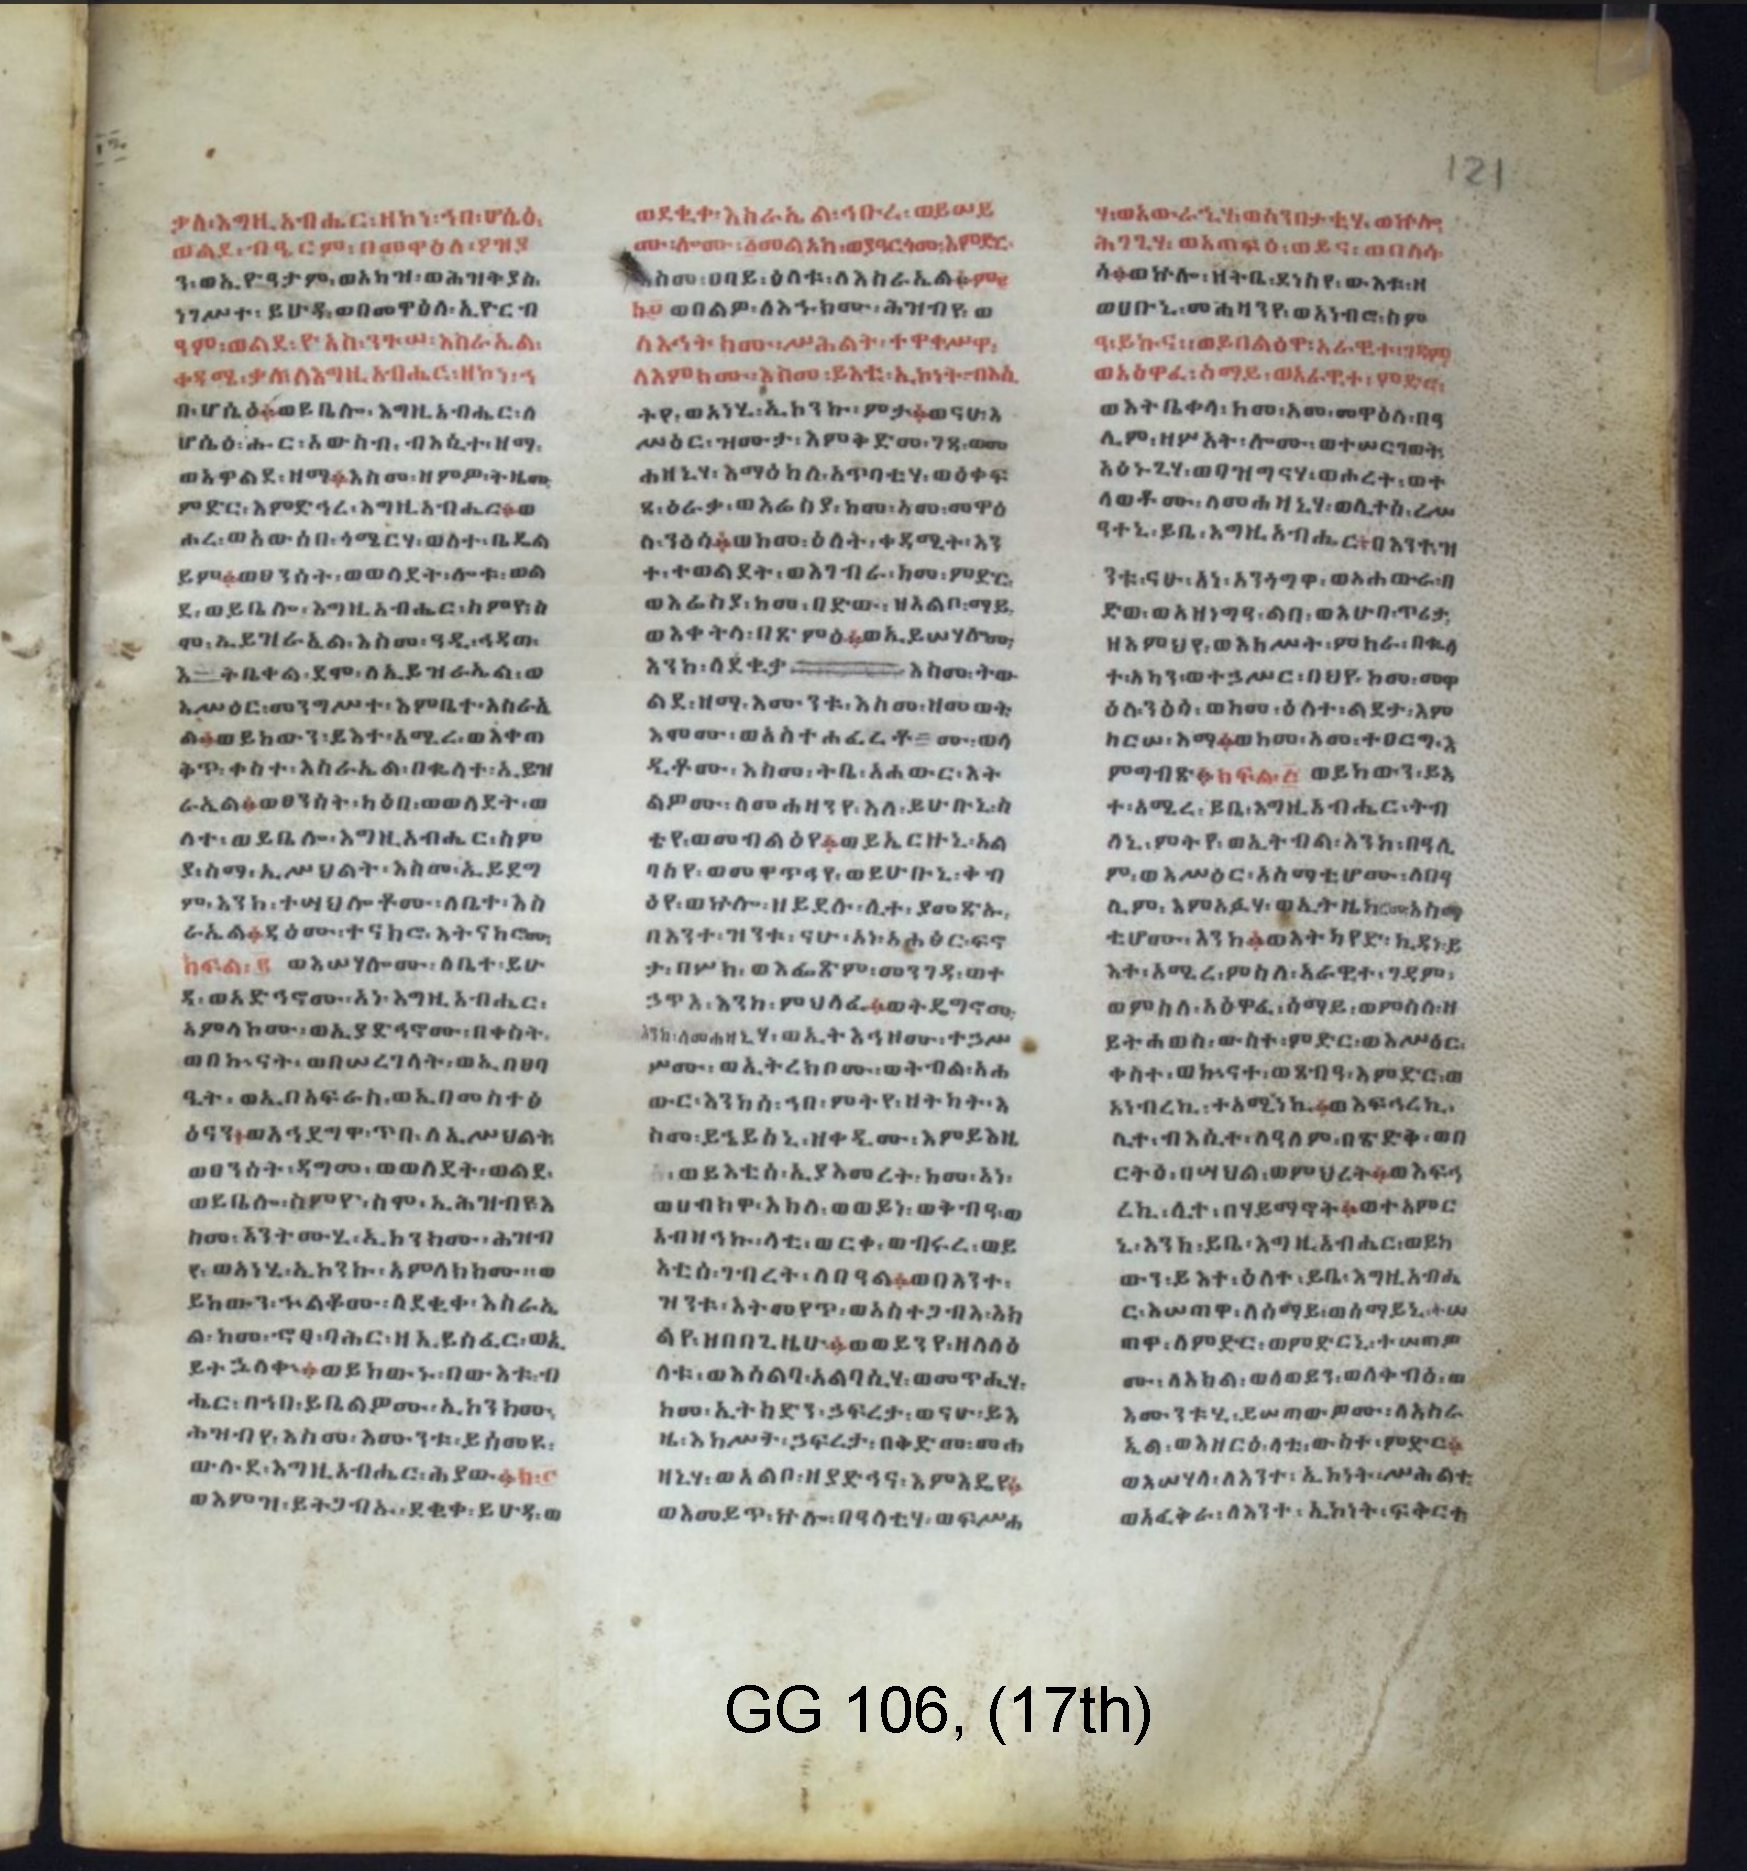 121
ቃለ፡እግዚአብሔር፡ዘኮነ፡ኀበ፡ሆሴዕ፡
ወልደ፡ብዒርም፡በመዋዕለ፡ዖዝያ
ን፡ወኢዮዓታም፡ወአካዝ፡ወሕዝቅያስ፡
ነገሥተ፡ይሁዳ፡ወበመዋዕለ፡ኢዮርብ
ዓም፡ወልደ፡ዮአስ፡ንጉሠ፡እስራኤል፡
ቀዳሚ፡ቃሉ፡ለእግዚአብሔር፡ዘኮነ፡ኀ
በ፡ሆሴዕ፨ወይቤሎ፡እግዚአብሔር፡ለ
ሆሴዕ፡ሑር፡አውስብ፡ብእሲተ፡ዘማ፡
ወአዋልደ፡ዘማ፨እስመ፡ዘምዎ፡ትዜሙ
ምድር፡እምድኅረ፡እግዚአብሔር፨ወ
ሖረ፡ወአውሰበ፡ጎሜርሃ፡ወለተ፡ቤዴል
ይም፨ወፀንሰት፡ወወለደት፡ሎቱ፡ወል
ደ፡ወይቤሎ፡እግዚአብሔር፡ስምየ፡ስ
ሞ፡ኢይዝራኤል፡እስመ፡ዓዲ፡ኅዳጠ፡
እትቤቀል፡ደሞ፡ለኢይዝራኤል፡ወ
እሥዕር፡መንግሥተ፡እምቤተ፡እስራኤ
ል፨ወይከውን፡ይእተ፡አሚረ፡ወእቀጠ
ቅጥ፡ቀስተ፡እስራኤል፡በቈላተ፡ኢይዝ
ራኤል፨ወፀንሰት፡ካዕበ፡ወወለደት፡ወ
ለተ፡ወይቤሎ፡እግዚአብሔር፡ስም
ያ፡ስማ፡ኢሥህልት፡እስመ፡ኢይደግ
ም፡እንከ፡ተሣህሎቶሙ፡ለቤተ፡እስ
ራኤል፨ዳዕሙ፡ተናክሮ፡እትናከሮሙ፡
ክፍል፡፪ ወእሣሃሎሙ፡ለቤተ፡ይሁ
ዳ፡ወአድኅኖሙ፡አነ፡እግዚአብሔር፡
አምላከሙ፡ወኢያድኅኖሙ፡በቀስት፡
ወበኲናት፡ወበሠረገላት፡ወኢበፀባ
ዒት፡ወኢበአፍራስ፡ወኢበመስተፅ
ዕናን፨ወአኅደግዋ፡ጥበ፡ለኢሥህልት
ወፀንሰት፡ዳግመ፡ወወለደት፡ወልደ፡
ወይቤሎ፡ስምዮ፡ስሞ፡ኢሕዝብየ፡እ
ስመ፡አንትሙሂ፡ኢኮንክሙ፡ሕዝብ
የ፡ወአነሂ፡ኢኮንኩ፡አምላክክሙ፡፡ወ
ይከውን፡ኊልቆሙ፡ለደቂቀ፡እስራኤ
ል፡ከመ፡ኆፃ፡ባሕር፡ዘኢይሰፈር፡ወኢ
ይትኋለቍ፨ወይከውኑ፡በውእቱ፡ብ
ሔር፡በኀበ፡ይቤልዎሙ፡ኢኮንክሙ፡
ሕዝብየ፡እስመ፡እሙንቱ፡ይሰመዩ፡
ውሉደ፡እግዚአብሔር፡ሕያው፨
ወእምዝ፡ይትጋብኡ፡ደቂቀ፡ይሁዳ፡ወ
ወደቂቀ፡እስራኤል፡ኅቡረ፡ወይሠይ
ሙ፡ሎሙ፡ዕመልአከ፡ወያዓርጎሙ፡እምድር፡
እስመ፡ዐባይ፡ዕለቱ፡ለእስራኤል፨
ወበልዎ፡ለእኁክሙ፡ሕዝብየ፡ወ
ለእኅትክሙ፡ሥሕልት፡ተዋቀሥዋ፡
ለእምክሙ፡እስመ፡ይእቲ፡ኢኮነት፡ብእሲ
ትየ፡ወአነሂ፡ኢኮንኩ፡ምታ፨ወናሁ፡እ
ሥዕር፡ዝሙታ፡እምቅድመ፡ገጻ፡ወመ
ሐዘኒሃ፡እማዕከለ፡አጥባቲሃ፡ወዕቀፍ
ጻ፡ዕራቃ፡ወእሬስያ፡ከመ፡አመ፡መዋዕ
ለ፡ንዕሳ፨ወከመ፡ዕለት፡ቀዳሚት፡እን
ተ፡ተወልደት፡ወእገብራ፡ከመ፡ምድር፡
ወእሬስያ፡ከመ፡በድው፡ዘአልቦ፡ማይ፡
ወእቀትላ፡በጽምዕ፨ወኢይሠሃሎሙ፡
እንከ፡ለደቂቃ እስመ፡ትው
ልደ፡ዘማ፡እሙንቱ፡እስመ፡ዘመወት
እሞሙ፡ወአስተሐፈረቶሙ፡ወላ
ዲቶሙ፡እስመ፡ትቤ፡አሐውር፡እት
ልዎሙ፡ለመሐዘንየ፡እለ፡ይሁቡኒ፡ስ
ቴየ፡ወመብልዕየ፨ወይኤርዙኒ፡አል
ባስየ፡ወመዋጥሓየ፡ወይሁቡኒ፡ቀብ
ዕየ፡ወኵሎ፡ዘይደሉ፡ሊተ፡ያመጽኡ፡
በእንተ፡ዝንቱ፡ናሁ፡አነ፡አሐፅር፡ፍኖ
ታ፡በሦክ፡ወእፌጽም፡መንገዳ፡ወተ
ኃጥእ፡እንከ፡ምህላፈ፨ወትዴግኖሙ፡
እንከ፡ለመሐዘኒሃ፡ወኢትእኅዞሙ፡ተኃሥ
ሦሙ፡ወኢትረክቦሙ፡ወትብል፡አሐ
ውር፡እንከሰ፡ኀበ፡ምትየ፡ዘትካት፡እ
ስመ፡ይኄይሰኒ፡ዘቀዲሙ፡እምይእዜ
፡ወይእቲሰ፡ኢያእመረት፡ከመ፡አነ፡
ወሀብክዋ፡እክለ፡ወወይነ፡ወቅብዓ፡ወ
አብዛኅኩ፡ላቲ፡ወርቀ፡ወብሩረ፡ወይ
እቲሰ፡ገብረት፡ለበዓል፨ወበእንተ፡
ዝንቱ፡እትመየጥ፡ወአስተጋብእ፡እክ
ልየ፡ዘበበጊዜሁ፨ወወይንየ፡ዘለለዕ
ለቱ፡ወእሰልባ፡አልባሲሃ፡ወመጥሒሃ፡
ከመ፡ኢትክድን፡ኃፍረታ፡ወናሁ፡ይእ
ዜ፡እከሥት፡ኃፍረታ፡በቅድመ፡መሐ
ዘኒሃ፡ወአልቦ፡ዘያድኅና፡እምእዴየ፨
ወእመይጥ፡ኵሎ፡በዓላቲሃ፡ወፍሥሐ
ሃ፡ወአውራኂሃ፡ወሰንበታቲሃ፡ወኵሎ፡
ሕገጊሃ፡ወአጠፍዕ፡ወይና፡ወበለሳ
ሳ፨ወኵሎ፡ዘትቤ፡ደነስየ፡ውእቱ፡ዘ
ወሀቡኒ፡መሐዛንየ፡ወአነብሮ፡ስም
ዓ፡ይኩና፡፡ወይበልዕዋ፡አራዊተ፡ገዳም
ወአዕዋፈ፡ሰማይ፡ወአራዊተ፡ምድር፡
ወእትቤቀላ፡ከመ፡አመ፡መዋዕለ፡በዓ
ሊም፡ዘሦአት፡ሎሙ፡ወተሠርገወት
አዕኑጊሃ፡ወባዝግናሃ፡ወሖረት፡ወተ
ላወቶሙ፡ለመሐዛኒሃ፡ወሊተሰ፡ረሥ
ዓተኒ፡ይቤ፡እግዚአብሔር፨በእንተዝ
ንቱ፡ናሁ፡አነ፡አንጎግዋ፡ወአሐውራ፡በ
ድወ፡ወእዘነግዓ፡ልባ፡ወእሁባ፡ጥሪታ፡
ዘእምህየ፡ወእከሥት፡ምክራ፡በቈላ
ተ፡አካን፡ወተኃሥር፡በህየ፡ከመ፡መዋ
ዕለ፡ንዕሳ፡ወከመ፡ዕለተ፡ልደታ፡እም
ከርሠ፡እማ፨ወከመ፡አመ፡ተዐርግ፡እ
ምግብጽ፨ክፍል፡፫ ወይከውን፡ይእ
ተ፡አሚረ፡ይቤ፡እግዚአብሔር፡ትብ
ለኒ፡ምትየ፡ወኢትብል፡እንከ፡በዓሊ
ም፡ወእሥዕር፡አስማቲሆሙ፡ለበዓ
ሊም፡እምአፉሃ፡ወኢትዜከር፡አስማ
ቲሆሙ፡እንከ፨ወእትካየድ፡ኪዳነ፡ይ
እተ፡አሚረ፡ምስለ፡አራዊተ፡ገዳም፡
ወምስለ፡አዕዋፈ፡ሰማይ፡ወምስለ፡ዘ
ይትሐወስ፡ውስተ፡ምድር፡ወእሥዕር፡
ቀስተ፡ወኲናተ፡ወጸብዓ፡እምድር፡ወ
አነብረኪ፡ተአሚነኪ፨ወእፍኅረኪ፡
ሊተ፡ብእሲተ፡ለዓለም፡በጽድቅ፡ወበ
ርትዕ፡በሣህል፡ወምህረት፨ወእፍኅ
ረኪ፡ሊተ፡በሃይማኖት፨ወተአምር
ኒ፡እንከ፡ይቤ፡እግዚአብሔር፡ወይከ
ውን፡ይእተ፡ዕለተ፡ይቤ፡እግዚአብሔ
ር፡እሠጠዋ፡ለሰማይ፡ወሰማይኒ፡ተሠ
ጠዋ፡ለምድር፡ወምድርኒ፡ተሠጠዎ
ሙ፡ለእክል፡ወለወይን፡ወለቅብዕ፡ወ
እሙንቱሂ፡ይሠጠውዎሙ፡ለእስራ
ኤል፡ወእዘርዕ፡ላቲ፡ውስተ፡ምድር፨
ወእሣሃላ፡ለእንተ፡ኢኮነት፡ሥሕልተ
ወአፈቅራ፡ለእንተ፡ኢኮነት፡ፍቅርተ
GG 106, (17th)